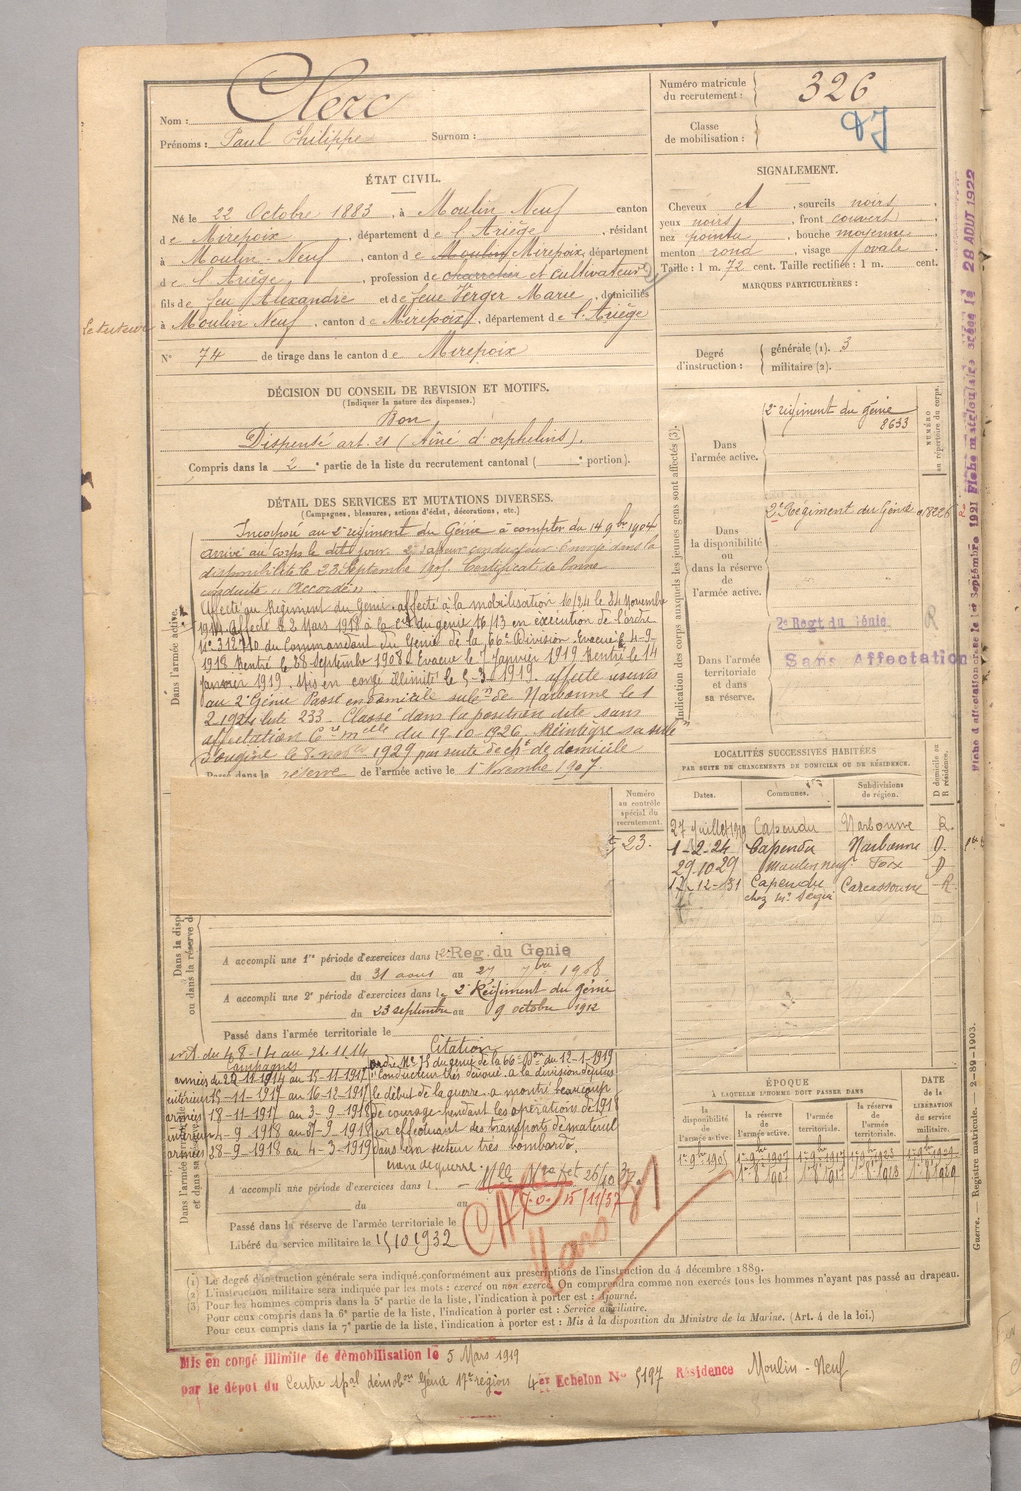 Nom : Clerc
Prénoms : Paul Philippe Surnom :
Numéro matricule du recrutement : 326
Classe de mobilisation :
ÉTAT CIVIL.
Né le 22 Octobre 1883, à Moulin Neuf canton
de Mirepoix, département de l'Ariège, résidant
à Moulin-Neuf, canton de Moulin Mirepoix, département
de l'Ariège, profession de charretier et cultivateur
fils de feu Alexandre et de feue Verger Marie, domiciliés
Le tuteur
à Moulin Neuf, canton de Mirepoix, département de l'Ariège
N° 74 de tirage dans le canton de Mirepoix
SIGNALEMENT.
Cheveux et, sourcils noirs,
yeux noirs, front couvert,
nez pointu, bouche moyenne,
menton rond, visage ovale.
Taille : 1 m. 72 cent. Taille rectifiée : 1 m. cent.
MARQUES PARTICULIÈRES :
Degré d'instruction : générale (1). 3
militaire (2).
DÉCISION DU CONSEIL DE REVISION ET MOTIFS.
(Indiquer la nature des dispenses.)
Bon
Dispensé art. 21 (Aîné d'orphelins).
Compris dans la 2e partie de la liste du recrutement cantonal ( e portion).
DÉTAIL DES SERVICES ET MUTATIONS DIVERSES.
(Campagnes, blessures, actions d'éclat, décorations, etc.)
Dans l'armée active.
Incorporé au 2e régiment du Génie à compter du 14 9bre 1904
arrivé au corps le dit jour. 2e sapeur conducteur. Envoyé dans la
disponibilité le 23 Septembre 1905. Certificat de bonne
conduite "Accordé".
Affecté au Régiment du Génie affecté à la mobilisation 16/24 le 24 Novembre
1914 Affecté le 2 Mars 1918 à la Cie du génie 16/13 en exécution de l'ordre
du Commandant du Génie de la 66e Division Evacué le 4-9-
1918 Rentré le 28 Septembre 1908. Evacué le 7 Janvier 1919 Rentré le 14
janvier 1919. Mis en congé illimité le 5-3-1919. affecté
au 2e Génie Passé en domicile subon de Narbonne le 1
2.1924 liste 233 - Classé dans la position dite sans
affectation Cre melle du 19.10.1926. Réintègre sa subon
d'origine le 8 1929 par suite de cht de domicile
Passé dans la réserve de l'armée active le 1 Novembre 1907.
Numéro au contrôle spécial du recrutement.
23.
Indication des corps auxquels les jeunes gens sont affectés (3).
NUMÉRO au répertoire du corps.
Dans l'armée active.
2e régiment du génie
8633
Dans la disponibilité ou dans la réserve de l'armée active.
2e Régiment du Génie
Dans l'armée territoriale et dans sa réserve.
2e Regt du Génie R
Sans Affectation
LOCALITÉS SUCCESSIVES HABITÉES
PAR SUITE DE CHANGEMENTS DE DOMICILE OU DE RÉSIDENCE.
Dates. Communes. Subdivisions de région. D domicile ou R résidence.
27 Juillet 1919 Capendu Narbonne R.
1-2-24 Capendu Narbonne D.
29.10.29 Moulin neuf Foix D
12-12-31 Capendu Carcassonne R.
chez Mr
Dans la disp
ou dans la réserve d
A accompli une 1re période d'exercices dans le 2e Reg. du Genie
du 31 aout au 27 7bre 1908
A accompli une 2e période d'exercices dans le 2e Régiment du génie
du 23 septembre au 9 octobre 1912
Passé dans l'armée territoriale le
du 4-8-14 au 21.11.14
Campagnes
armées du 22-11-1914 au 15-11-1917
intérieur 15-11-1917 au 16-12-1917
armées 18-11-1917 au 3-9-1918
intérieur 4-9-1918 au 27-9-1918
armées 28-9-1918 au 4-3-1919
Citation
ordre No 75 du génie de la 66e Don du 12-1-1919
"Conducteur très dévoué, à la division depuis
le début de la guerre, a montré beaucoup
de courage pendant les opérations de 1918
en effectuant des transports de matériel
dans un secteur très bombardé.
croix de guerre
A accompli une période d'exercices dans l
du au
15/11/37
Mars
Passé dans la réserve de l'armée territoriale le
Libéré du service militaire le 15 10 1932
ÉPOQUE
À LAQUELLE L'HOMME DOIT PASSER DANS
la disponibilité de l'armée active. la réserve de l'armée active. l'armée territoriale. la réserve de l'armée territoriale. DATE de la LIBÉRATION du service militaire.
1er 9bre 1905 1er 9bre 1907 1er 9bre 1917 1er 9bre 1923 1er 9bre 1929
(1) Le degré d'instruction générale sera indiqué conformément aux prescriptions de l'instruction du 4 décembre 1889.
(2) L'instruction militaire sera indiquée par les mots : exercé ou non exercé. On comprendra comme non exercés tous les hommes n'ayant pas passé au drapeau.
(3) Pour les hommes compris dans la 5e partie de la liste, l'indication à porter est : Ajourné.
Pour ceux compris dans la 6e partie de la liste, l'indication à porter est : Service auxiliaire.
Pour ceux compris dans la 7e partie de la liste, l'indication à porter est : Mis à la disposition du Ministre de la Marine. (Art. 4 de la loi.)
Mis en congé illimité de démobilisation le 5 Mars 1919
par le dépôt du Centre démobon Génie 17e région 4er Echelon No 5197 Résidence Moulin-Neuf
Fiche d'affectation créée le 1er Septembre 1921 Fiche matriculaire créée le 28 AOUT 1922
Guerre. — Registre matricule. — 2-89-1903.